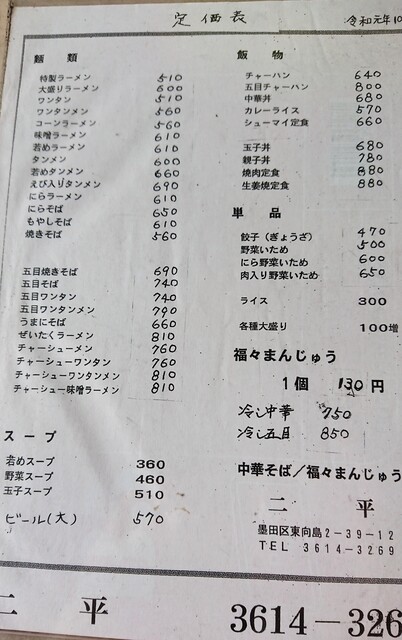 定価表
令和元年10
麺類
特製ラーメン 510
大盛りラーメン 600
ワンタン 510
ワンタンメン 560
コーンラーメン 560
味噌ラーメン 610
若めラーメン 610
タンメン 600
若めタンメン 660
えび入りタンメン 690
にらラーメン 610
にらそば 650
もやしそば 610
焼きそば 560
五目焼きそば 690
五目そば 740
五目ワンタン 740
五目ワンタンメン 790
うまにそば 660
ぜいたくラーメン 810
チャーシューメン 760
チャーシューワンタン 760
チャーシューワンタンメン 810
チャーシュー味噌ラーメン 810
スープ
若めスープ 360
野菜スープ 460
玉子スープ 510
ビール(大) 570
飯物
チャーハン 640
五目チャーハン 800
中華丼 680
カレーライス 570
シューマイ定食 660
玉子丼 680
親子丼 780
焼肉定食 880
生姜焼定食 880
単品
餃子(ぎょうざ) 470
野菜いため 500
にら野菜いため 600
肉入り野菜いため 650
ライス 300
各種大盛り 100増
福々まんじゅう
1個 130円
冷し中華 750
冷し五目 850
中華そば/福々まんじゅう
二平
墨田区東向島2-39-12
TEL 3614-3269
二平 3614-326